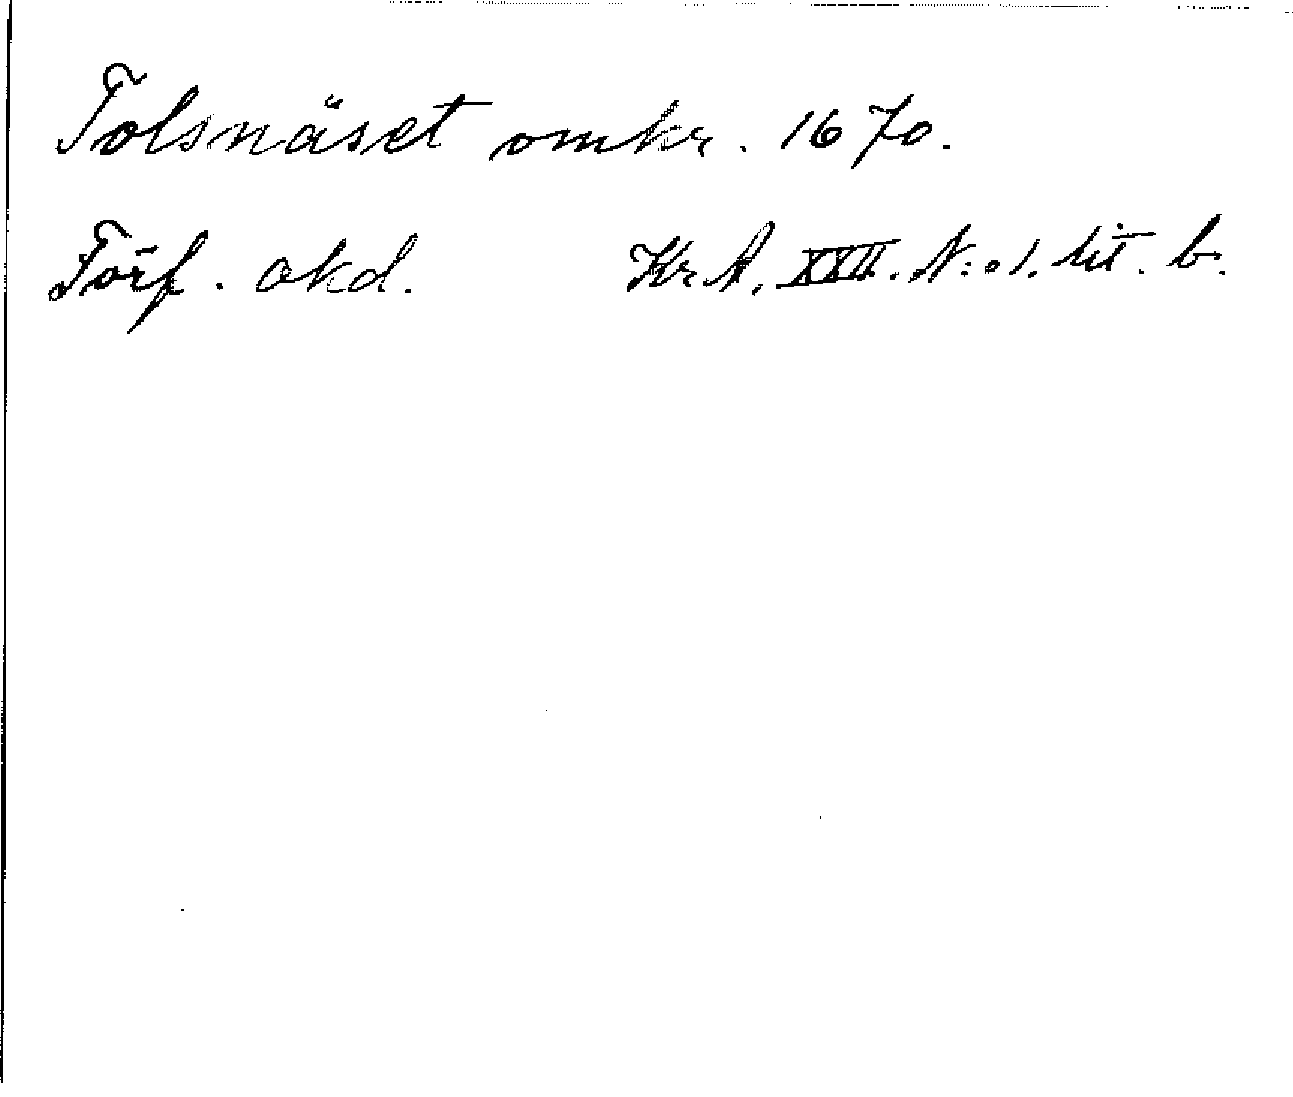 Tolsnäset omkr. 1670.
Förf. okd. Kr.A. XXII. N:o 1. lit. b.